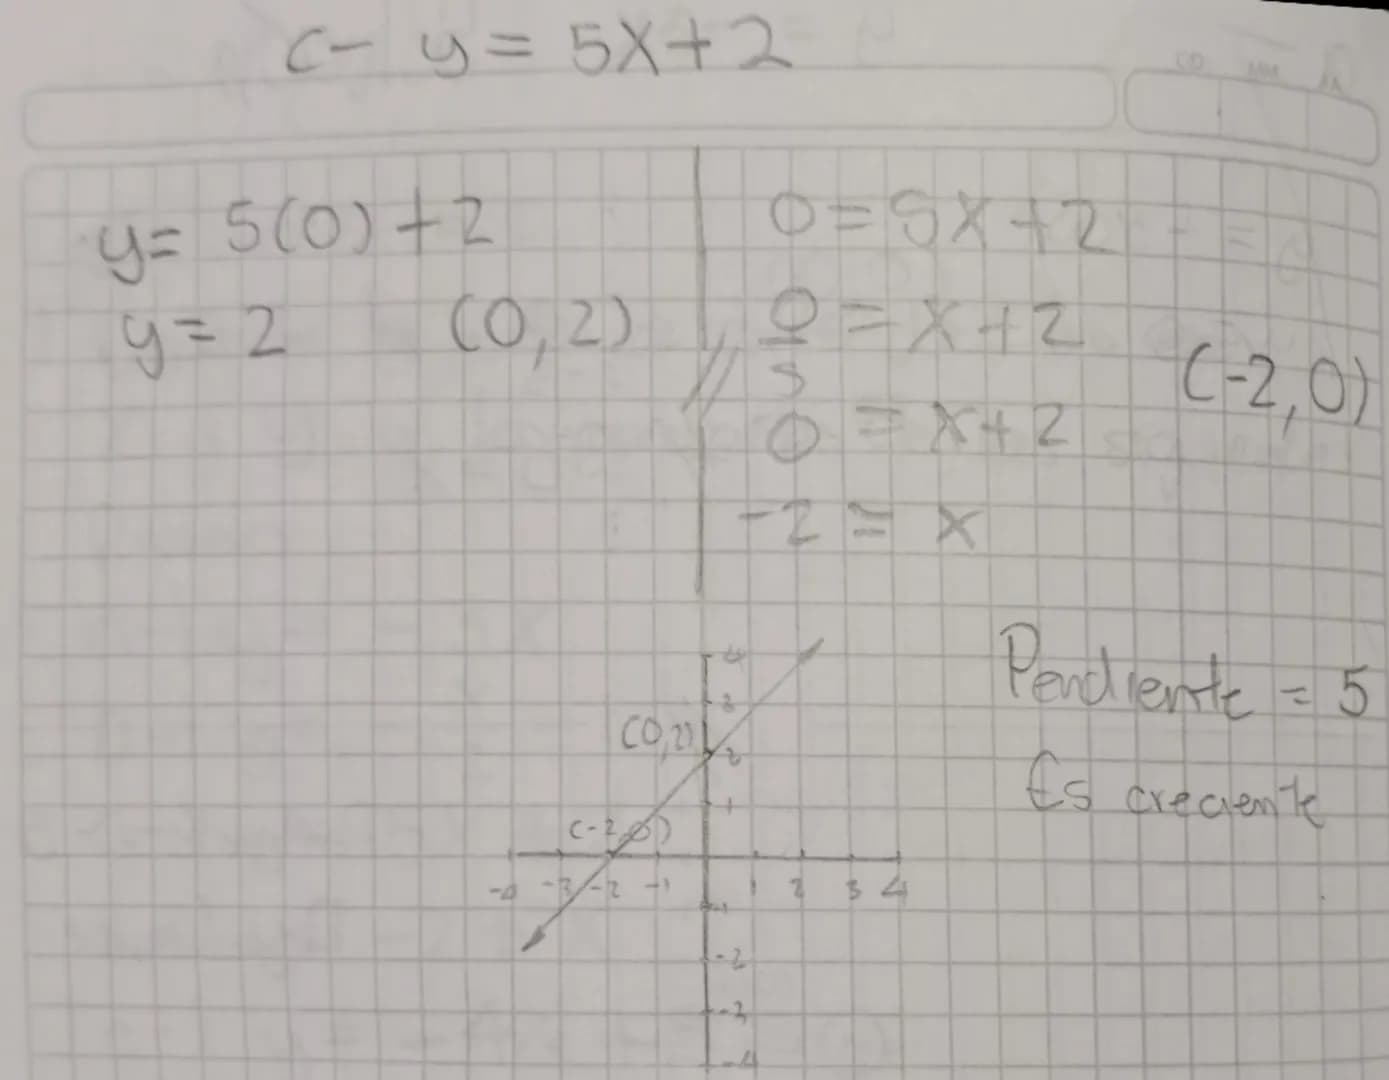 c- y = 5x+2
y= 5(0)+2
y= 2 (0,2)
0=5x+2
0/5 = x+2
(-2,0)
0 = x+2
-2 = x
Pendiente = 5
Es creciente
4
3
(0,2)
2
1
(-2,0)
-3 -2 -1 1 2 3 4
-1
-2
-3
-4